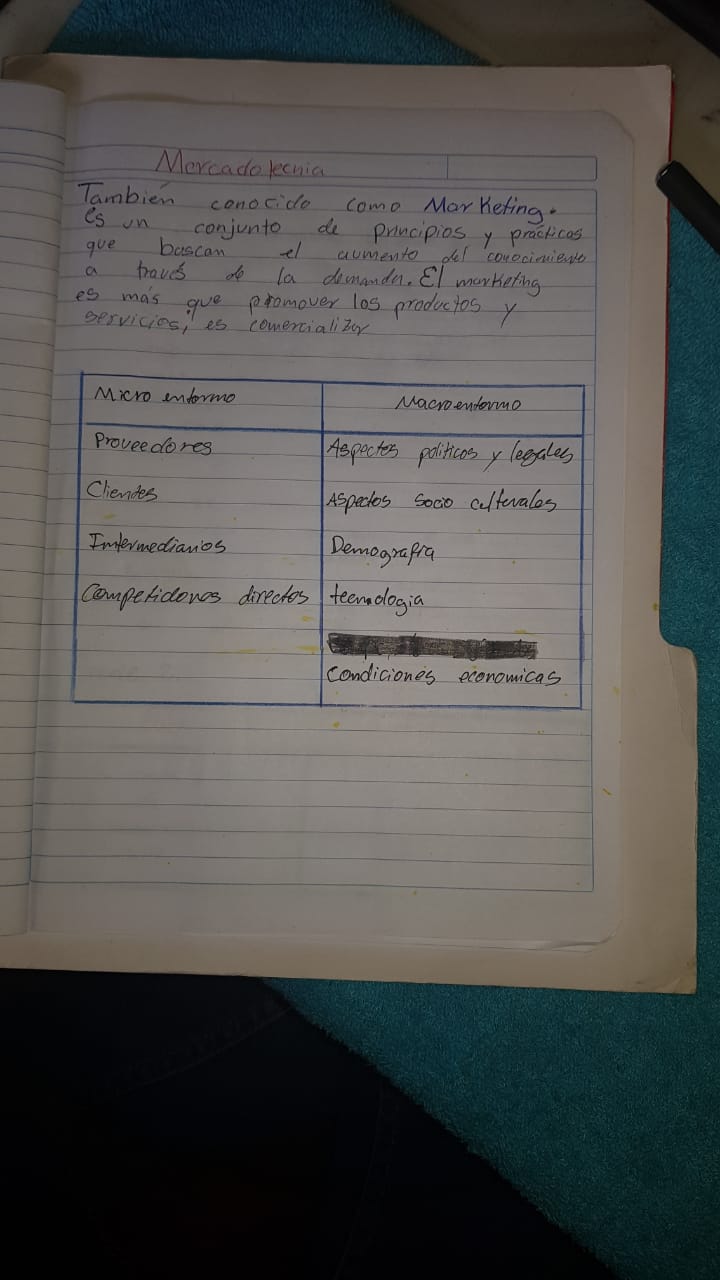 Mercadotecnia
También conocido como Marketing.
es un conjunto de principios y prácticas
que buscan el aumento del conocimiento
a través de la demanda. El marketing
es más que promover los productos y
servicios; es comercializar
Micro entorno Macroentorno
Proveedores Aspectos politicos y legales
Clientes Aspectos socio culturales
Intermediarios Demografia
Competidores directos tecnologia
Condiciones economicas